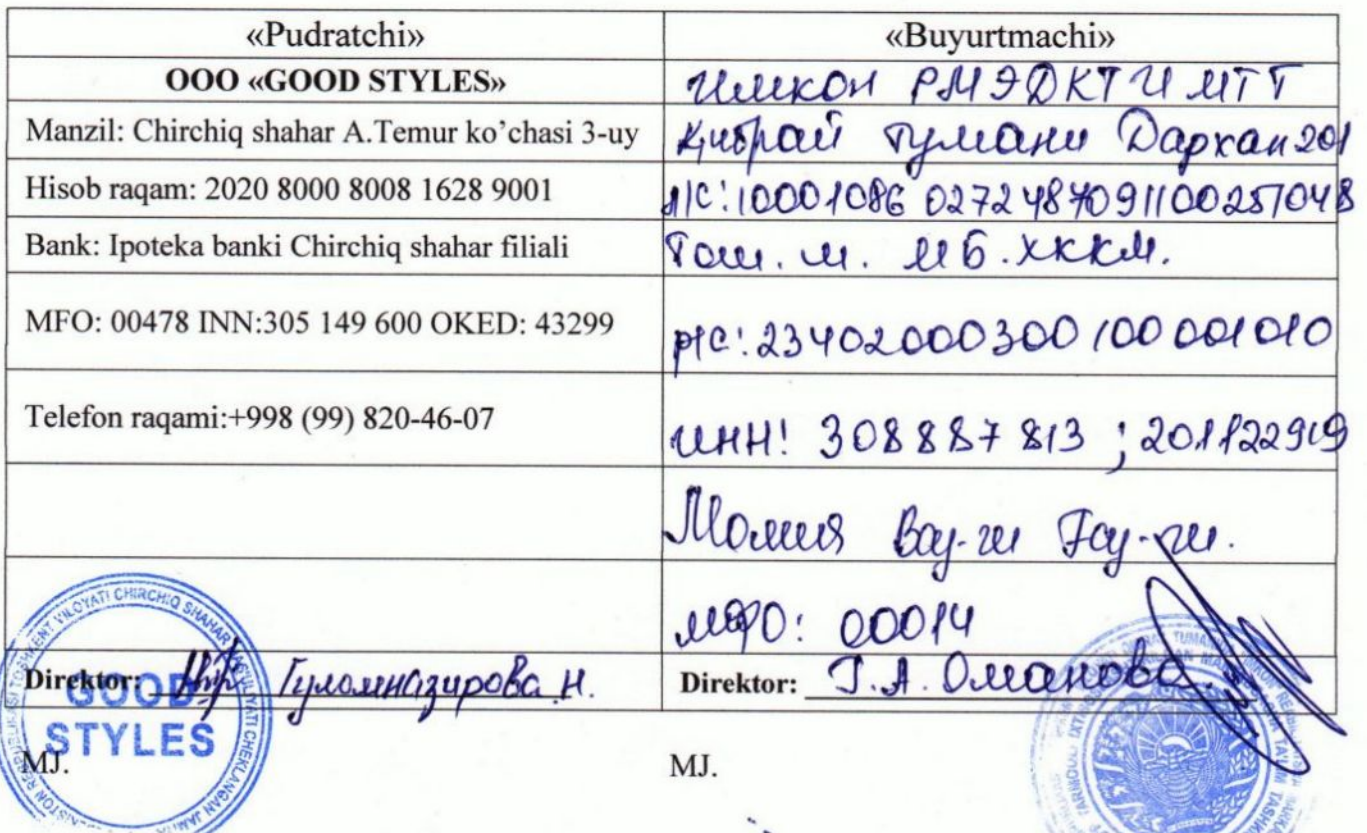 «Pudratchi» «Buyurtmachi»
ООО «GOOD STYLES» Имкон РМЭДКТИ МТТ
Manzil: Chirchiq shahar A.Temur ko’chasi 3-uy Қибрай тумани Дархан 201
Hisob raqam: 2020 8000 8008 1628 9001 л/с: 10001086 0272487091100251048
Bank: Ipoteka banki Chirchiq shahar filiali Тош. в. МБ. ХККМ.
MFO: 00478 INN:305 149 600 OKED: 43299 р/с: 23402000300100001010
Telefon raqami:+998 (99) 820-46-07 ИНН: 308887813 ; 201122919
Молия Ваз-ги Ғаз-ги.
МФО: 00014
Direktor: Гуломназирова Н. Direktor: Г.А. Оманова
GOOD
STYLES
MJ. MJ.